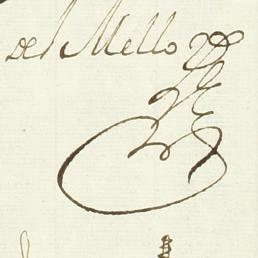 del Mello